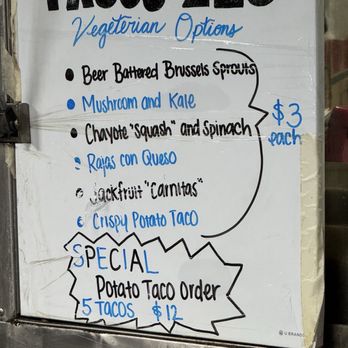 Vegeterian Options
Beer Battered Brussels Sprouts
Mushroom and Kale
Chayote "Squash" and spinach
Rajas con Queso
Jackfruit "Carnitas"
Crispy Potato Taco
$3
each
SPECIAL
Potato Taco Order
5 TACOS $12